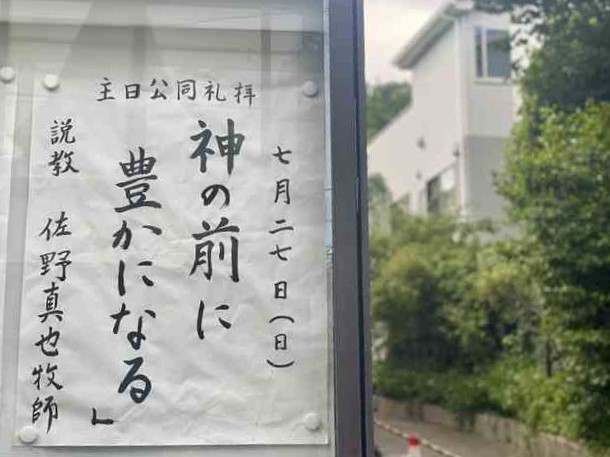 主日公同礼拝
七月二七日(日)
神の前に
豊かになる」
説教 佐野真也牧師